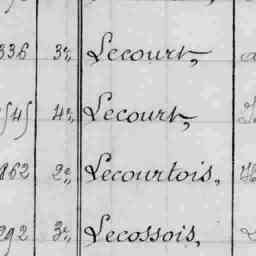 336 3e, Lecourt,
4e, Lecourt,
862 2e, Lecourtois,
292 3e, Lecossois,